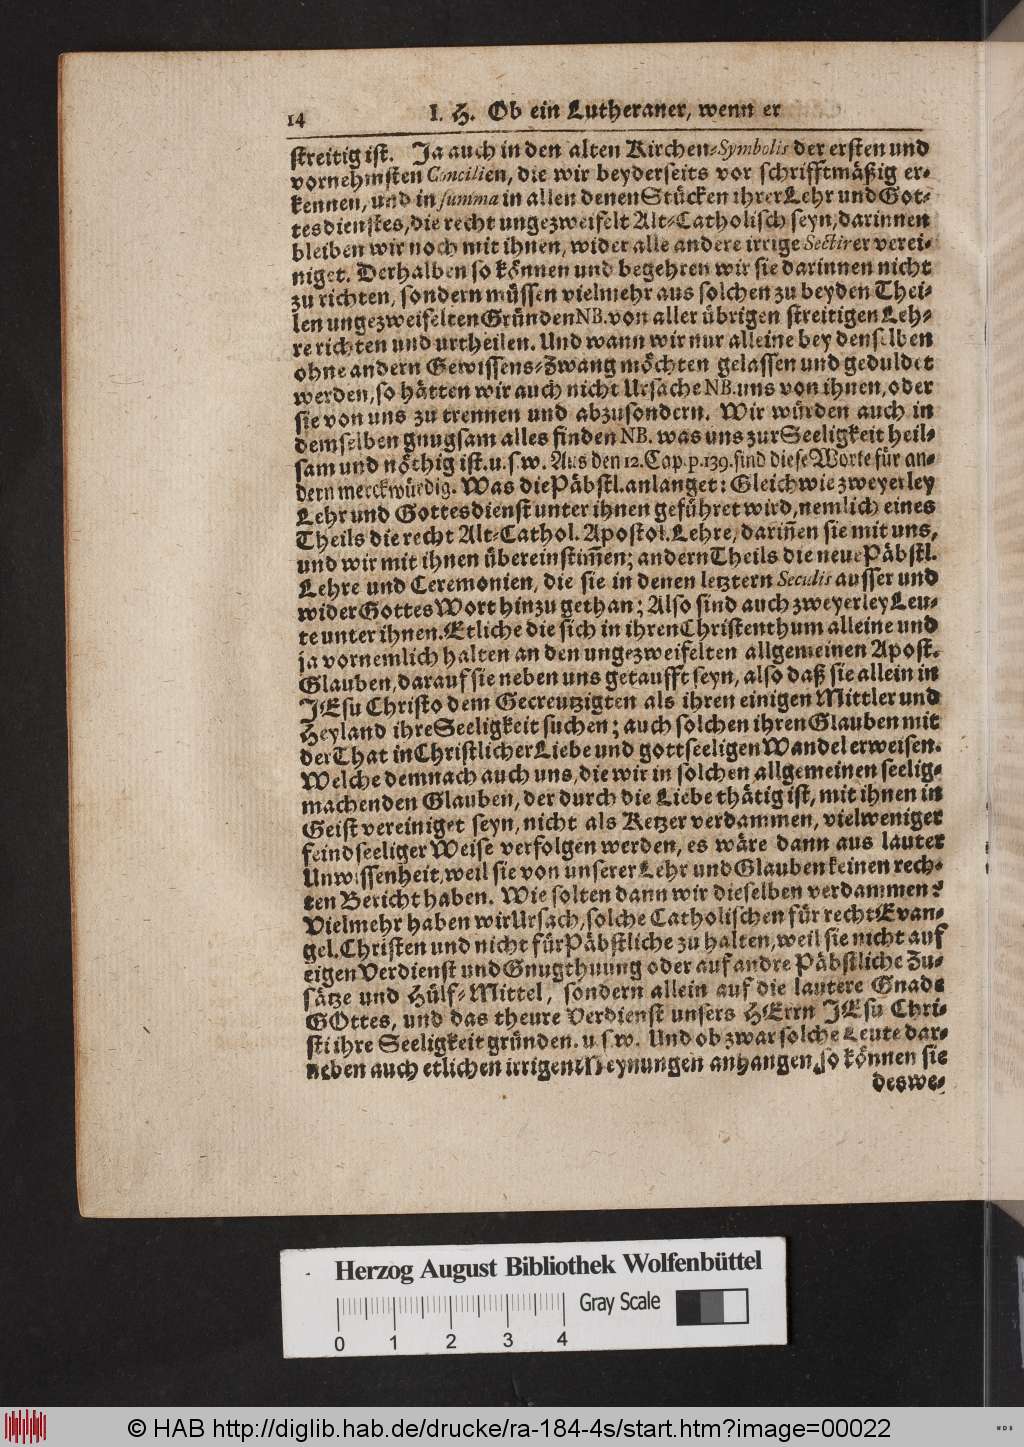 14 I. H. Ob ein Lutheraner, wenn er
streitig ist. Ja auch in den alten Kirchen-Symbolis der ersten und
vornehmsten Concilien, die wir beyderseits vor schrifftmäßig er-
kennen, und in summa in allen denen Stücken ihrer Lehr und Got-
tesdienstes, die recht ungezweifelt Alt-Catholisch seyn, darinnen
bleiben wir noch mit ihnen, wider alle andere irrige Sectirer verei-
niget. Derhalben so können und begehren wir sie darinnen nicht
zu richten, sondern müssen vielmehr aus solchen zu beyden Thei-
len ungezweifelten Gründen NB. von aller übrigen streitigen Leh-
re richten und urtheilen. Und wann wir nur alleine bey denselben
ohne andern Gewissens-Zwang möchten gelassen und geduldet
werden, so hätten wir auch nicht Ursache NB. uns von ihnen, oder
sie von uns zu trennen und abzusondern. Wir würden auch in
demselben gnugsam alles finden NB. was uns zur Seeligkeit heil-
sam und nöthig ist. u. s. w. Aus den 12. Cap. p. 139. sind diese Worte für an-
dern merckwürdig. Was die Päbstl. anlanget: Gleich wie zweyerley
Lehr und Gottesdienst unter ihnen geführet wird, nemlich eines
Theils die recht Alt-Cathol. Apostol. Lehre, dariñen sie mit uns,
und wir mit ihnen übereinstim̃en; andern Theils die neue Päbstl.
Lehre und Ceremonien, die sie in denen letztern Seculis ausser und
wider Gottes Wort hinzu gethan; Also sind auch zweyerley Leu-
te unter ihnen. Etliche die sich in ihren Christenthum alleine und
ja vornemlich halten an den ungezweifelten allgemeinen Apost.
Glauben, darauf sie neben uns getaufft seyn, also daß sie allein in
JEsu Christo dem Gecreutzigten als ihren einigen Mittler und
Heyland ihre Seeligkeit suchen; auch solchen ihren Glauben mit
der That in Christlicher Liebe und gottseeligen Wandel erweisen.
Welche demnach auch uns, die wir in solchen allgemeinen seelig-
machenden Glauben, der durch die Liebe thätig ist, mit ihnen in
Geist vereiniget seyn, nicht als Ketzer verdammen, vielweniger
feindseeliger Weise verfolgen werden, es wäre dann aus lauter
Unwissenheit, weil sie von unserer Lehr und Glauben keinen rech-
ten Bericht haben. Wie solten dann wir dieselben verdammen?
Vielmehr haben wir Ursach, solche Catholischen für recht Evan-
gel. Christen und nicht für Päbstliche zu halten, weil sie nicht auf
eigen Verdienst und Gnugthuung oder auf andre Päbstliche Zu-
sätze und Hülf-Mittel, sondern allein auf die lautere Gnade
GOttes, und das theure Verdienst unsers HErrn JEsu Chri-
sti ihre Seeligkeit gründen. u. s. w. Und ob zwar solche Leute dar-
neben auch etlichen irrigen Meynungen anhangen, so können sie
deswe-
Herzog August Bibliothek Wolfenbüttel
Gray Scale
0 1 2 3 4
© HAB http://diglib.hab.de/drucke/ra-184-4s/start.htm?image=00022